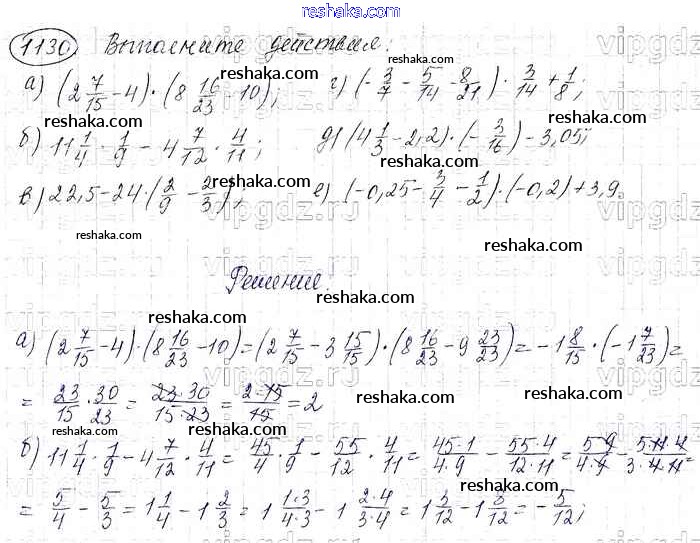 reshaka.com
1130 Выполните действия:
а) (2 7/15 − 4) · (8 16/23 − 10); г) (− 3/7 − 5/14 − 8/21) · 3/14 + 1/8;
б) 11 1/4 · 1/9 − 4 7/12 · 4/11; д) (4 1/3 − 2,2) · (− 3/16) − 3,05;
в) 22,5 − 24 · (2/9 − 2/3); е) (−0,25 − 3/4 − 1/2) · (−0,2) + 3,9.
Решение:
а) (2 7/15 − 4) · (8 16/23 − 10) = (2 7/15 − 3 15/15) · (8 16/23 − 9 23/23) = −1 8/15 · (−1 7/23) =
= 23/15 · 30/23 = 23·30/15·23 = 2·15/15 = 2
б) 11 1/4 · 1/9 − 4 7/12 · 4/11 = 45/4 · 1/9 − 55/12 · 4/11 = 45·1/4·9 − 55·4/12·11 = 5·9/4·9 − 5·11·4/3·4·11 =
= 5/4 − 5/3 = 1 1/4 − 1 2/3 = 1 1·3/4·3 − 1 2·4/3·4 = 1 3/12 − 1 8/12 = − 5/12;
vipgdz.ru
reshaka.com